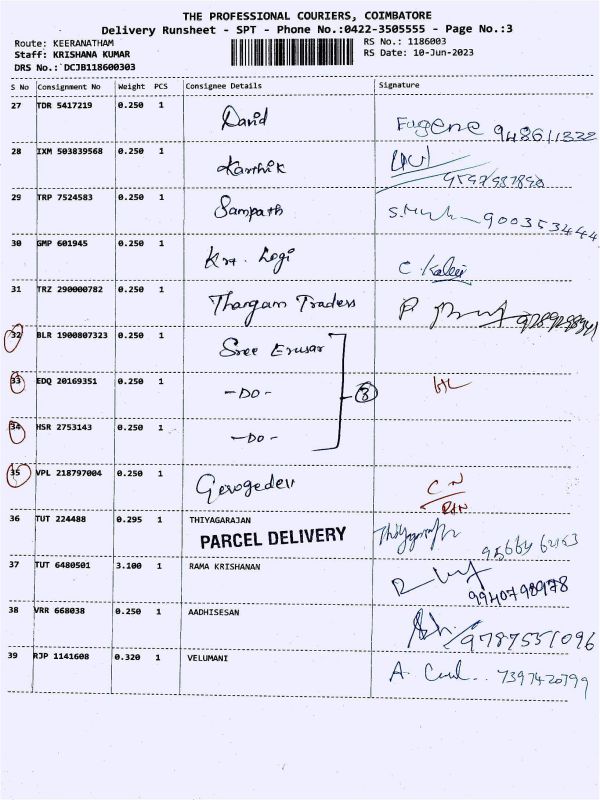 THE PROFESSIONAL COURIERS, COIMBATORE
Delivery Runsheet - SPT - Phone No.:0422-3505555 - Page No.:3
Route: KEERANATHAM RS No.: 1186003
Staff: KRISHANA KUMAR RS Date: 10-Jun-2023
DRS No.: DCJB118600303
S No Consignment No Weight PCS Consignee Details Signature
27 TDR 5417219 0.250 1 David Eugene
28 IXM 503839568 0.250 1 Karthik
29 TRP 7524583 0.250 1 Sampath
30 GMP 601945 0.250 1 Logi C. Kalai
31 TRZ 290000782 0.250 1 Thangam Traders
32 BLR 1900807323 0.250 1 Sree
33 EDQ 20169351 0.250 1 -DO- 3
34 HSR 2753143 0.250 1 -DO-
35 VPL 218797004 0.250 1 C N
36 TUT 224488 0.295 1 THIYAGARAJAN
PARCEL DELIVERY
37 TUT 6480501 3.100 1 RAMA KRISHANAN 9940798978
38 VRR 668038 0.250 1 AADHISESAN 9787551096
39 RJP 1141608 0.320 1 VELUMANI A. 7397420799